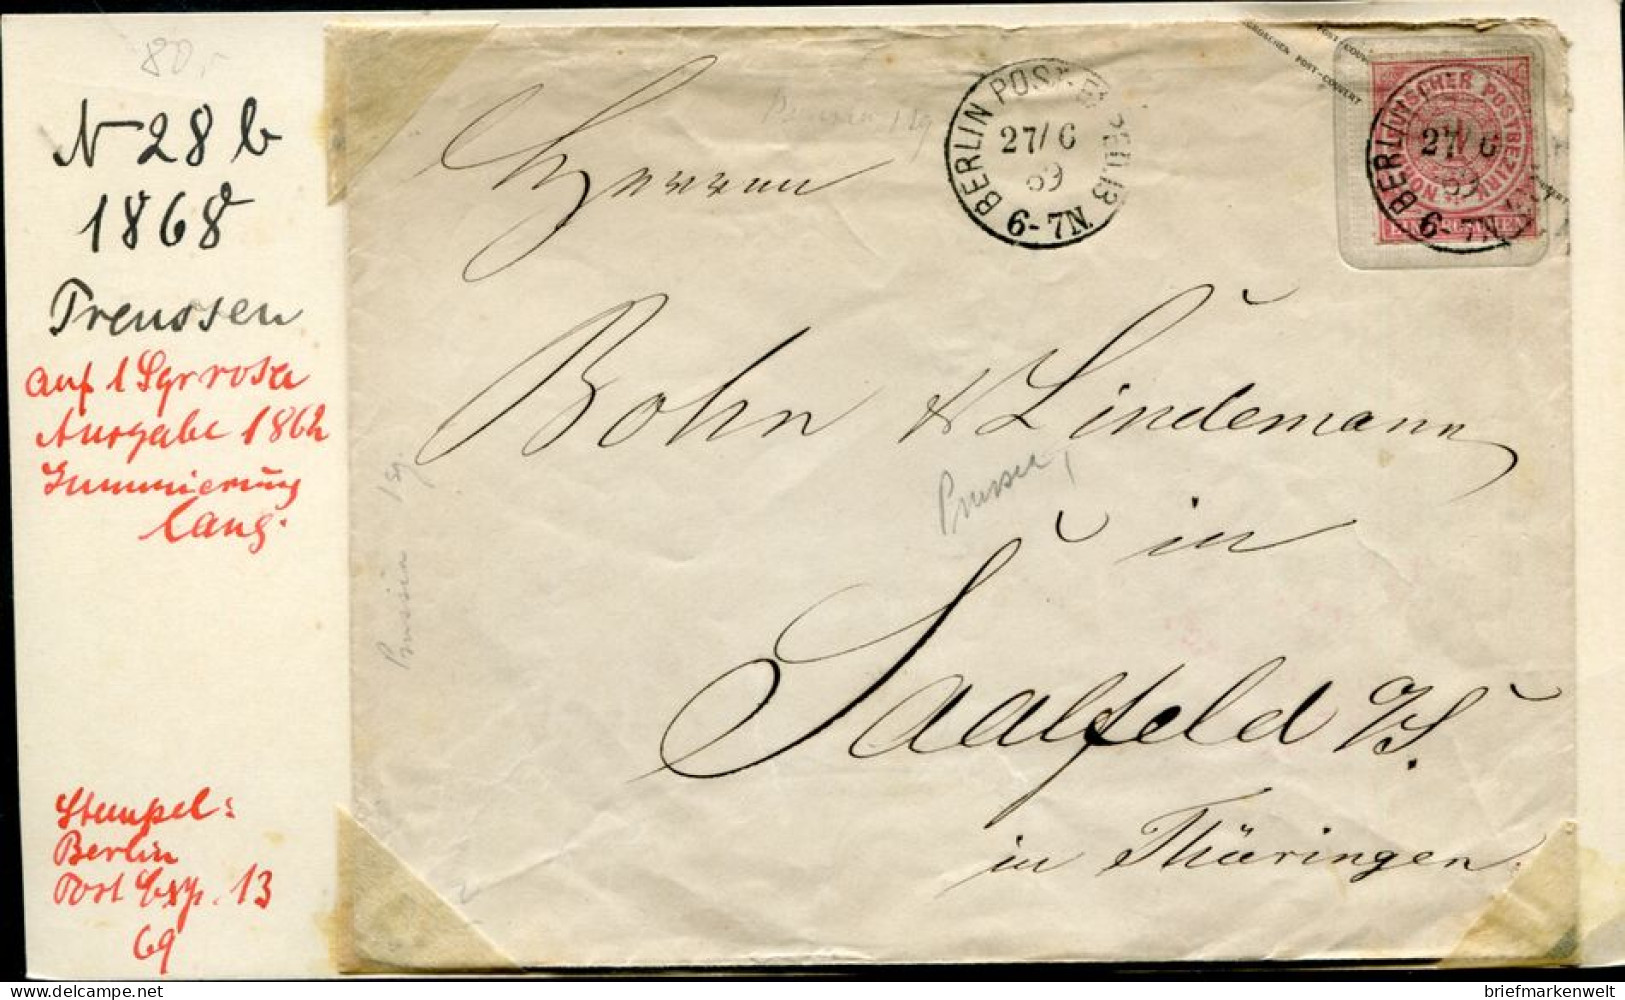 80,-
N 28 b
1868
Preussen
auf 1 Sgr rosa
Ausgabe 1862
Gummierung
lang.
Stempel:
Berlin
Post Exp. 13
69
Herren
Bohn & Lindemann
in
Saalfeld a/S.
in Thüringen
BERLIN POST-EXPED. 13
27/6
69
6-7N.
GROSCHEN POST-COUVERT
POST-COUVERT
NORDDEUTSCHER POSTBEZIRK
EIN GROSCHEN
BERLIN
27/6
69
6-7N.
Prussia 1 Sg.
Prussia
Prussia 1 Sg
delcampe.net
briefmarkenwelt